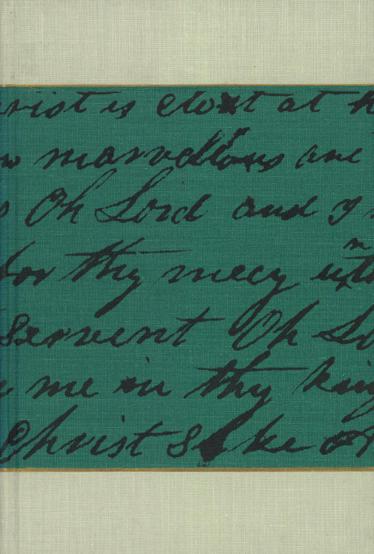 rist is clost at h
w marvellous are
s Oh Lord and I
for thy mecy unto
servent Oh Lo
e me in thy king
Christ Sake